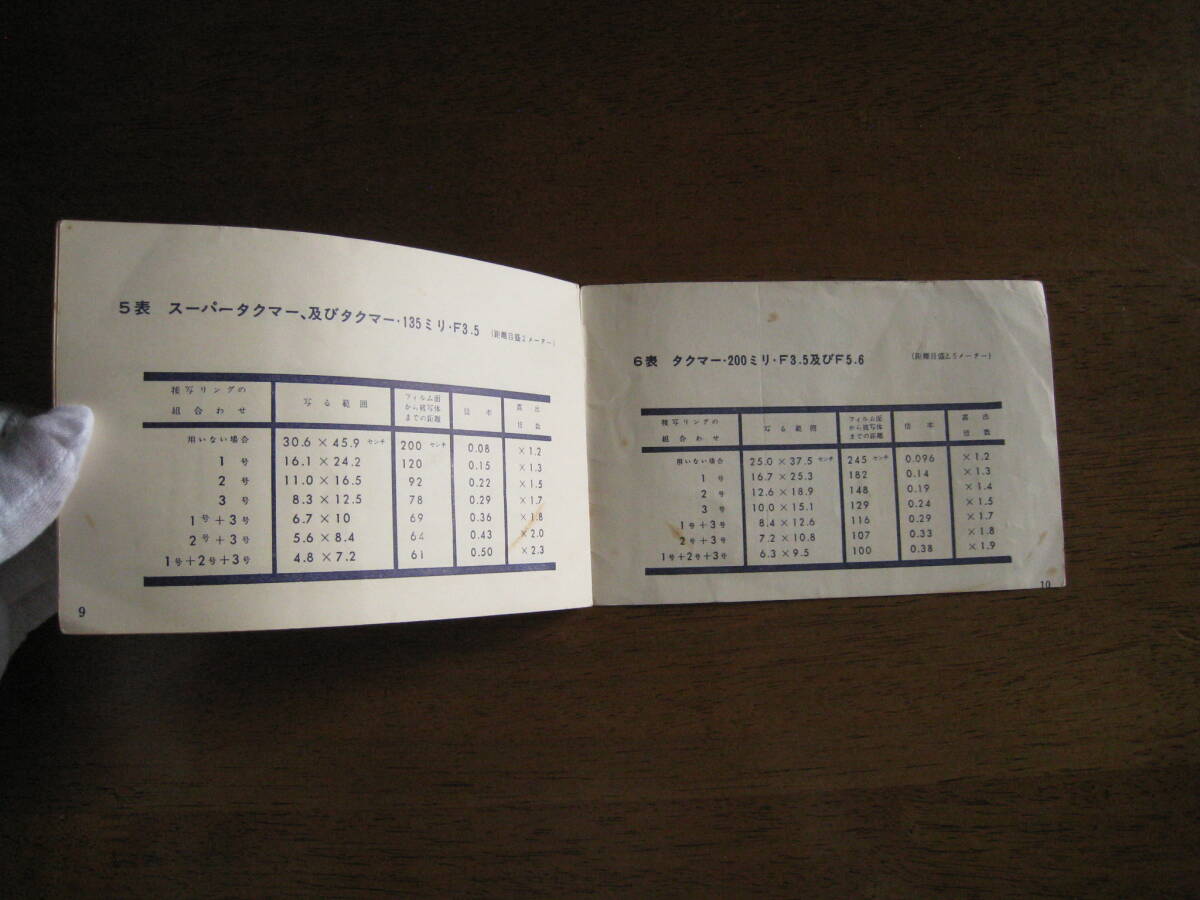 5表 スーパータクマー、及びタクマー・135ミリ・F3.5 (距離目盛2メーター)
接写リングの組合わせ 写る範囲 フィルム面から被写体までの距離 倍率 露出倍数
用いない場合 30.6 × 45.9 センチ 200 センチ 0.08 ×1.2
1号 16.1 × 24.2 120 0.15 ×1.3
2号 11.0 × 16.5 92 0.22 ×1.5
3号 8.3 × 12.5 78 0.29 ×1.7
1号+3号 6.7 × 10 69 0.36 ×1.8
2号+3号 5.6 × 8.4 64 0.43 ×2.0
1号+2号+3号 4.8 × 7.2 61 0.50 ×2.3
9
6表 タクマー・200ミリ・F3.5及びF5.6 (距離目盛2.5メーター)
接写リングの組合わせ 写る範囲 フィルム面から被写体までの距離 倍率 露出倍数
用いない場合 25.0 × 37.5 センチ 245 センチ 0.096 ×1.2
1号 16.7 × 25.3 182 0.14 ×1.3
2号 12.6 × 18.9 148 0.19 ×1.4
3号 10.0 × 15.1 129 0.24 ×1.5
1号+3号 8.4 × 12.6 116 0.29 ×1.7
2号+3号 7.2 × 10.8 107 0.33 ×1.8
1号+2号+3号 6.3 × 9.5 100 0.38 ×1.9
10